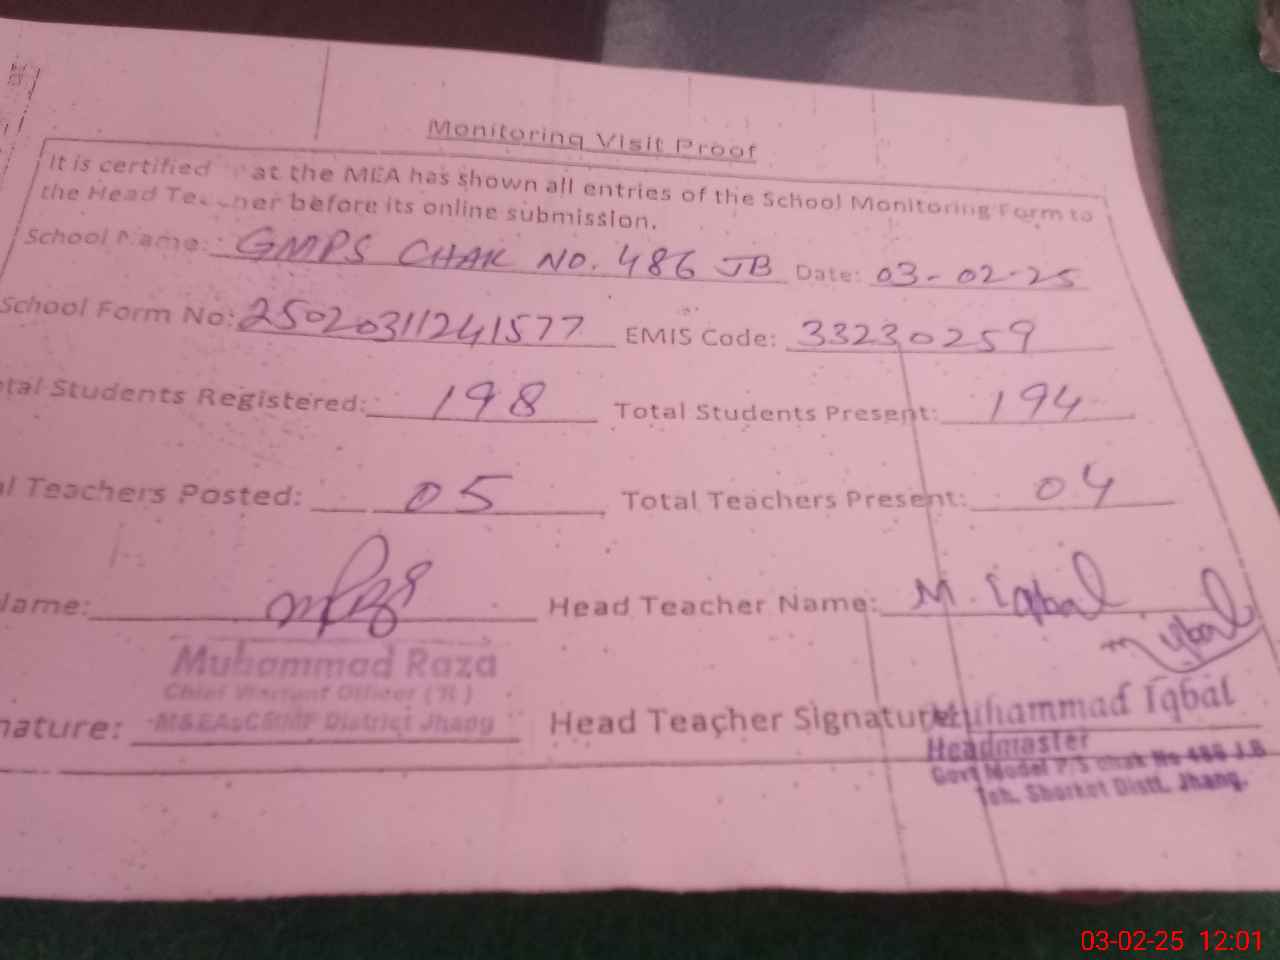 Monitoring Visit Proof
It is certified at the MEA has shown all entries of the School Monitoring Form to
the Head Teacher before its online submission.
School Name: GMPS CHAK NO. 486 JB Date: 03-02-25
School Form No: 25020311241577 EMIS Code: 33230259
tal Students Registered: 198 Total Students Present: 194
l Teachers Posted: 05 Total Teachers Present: 04
Name: Head Teacher Name: M. Iqbal
M Iqbal
Muhammad Raza
Chief Warrant Officer (R)
nature: District Jhang Head Teacher Signature: Muhammad Iqbal
Headmaster
Govt Model P/S chak No 486 J.B
Teh. Shorkot Distt. Jhang.
03-02-25 12:01